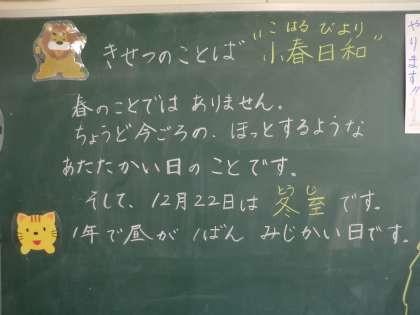 こはるびより
きせつのことば "小春日和"
春のことではありません。
ちょうど今ごろの、ほっとするような
あたたかい日のことです。
とうじ
そして、12月22日は 冬至 です。
1年で昼が 1ばん みじかい日です。
やります!!